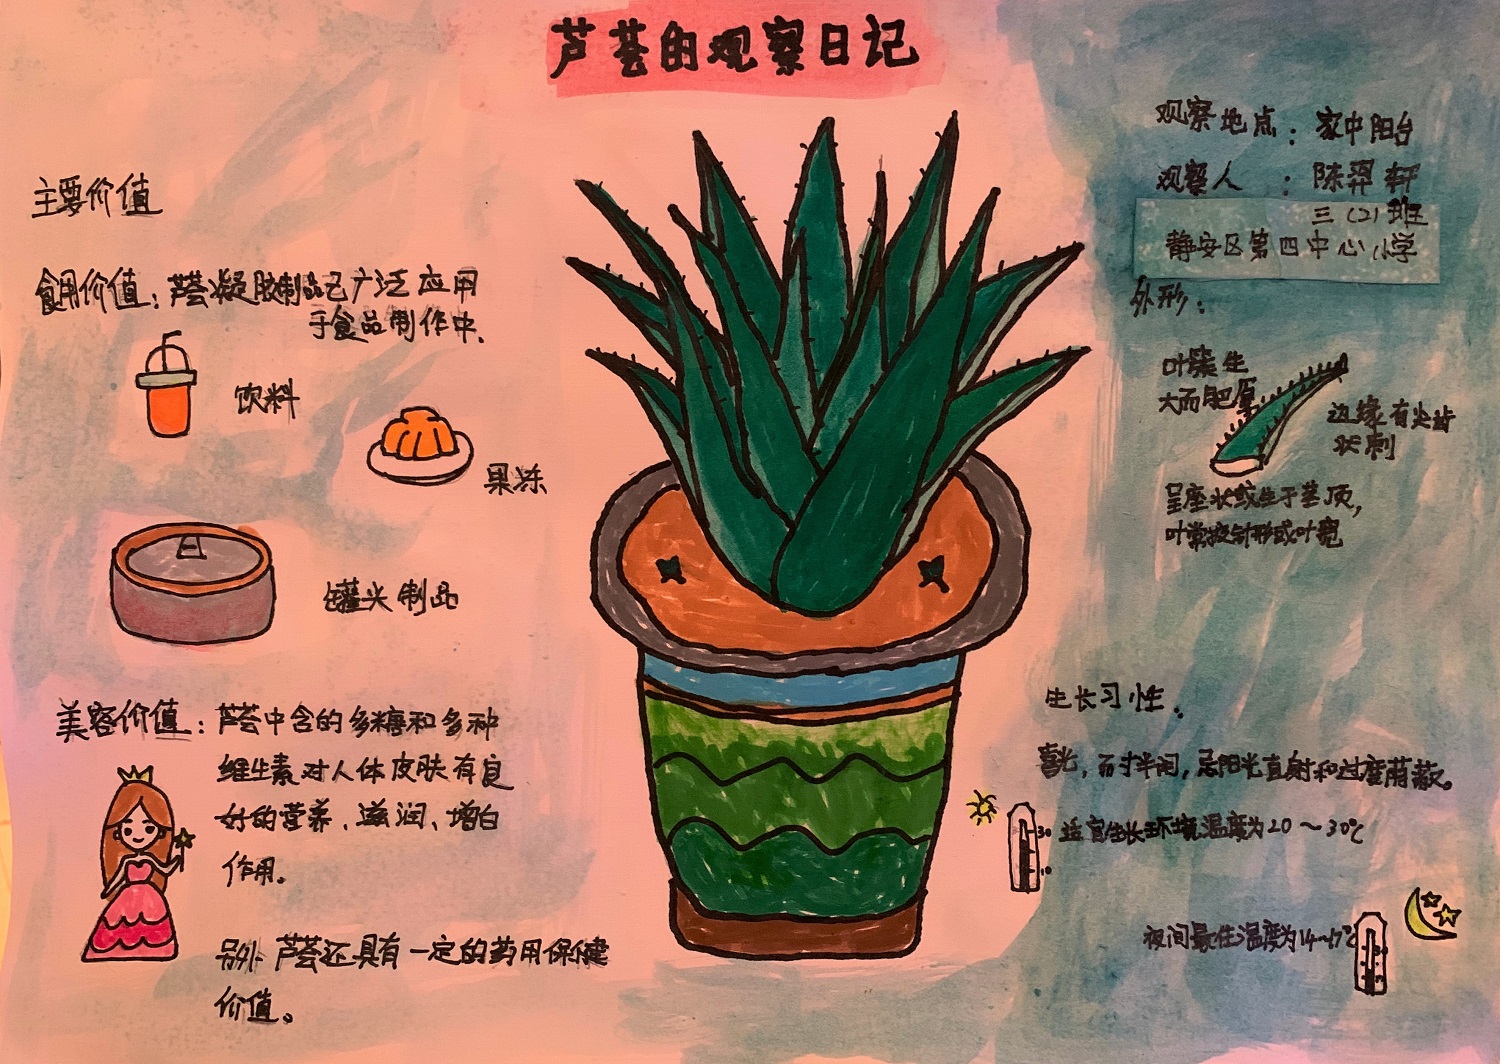 芦荟的观察日记
主要价值
食用价值：芦荟凝胶制品已广泛应用
于食品制作中.
饮料
果冻
罐头制品
美容价值：芦荟中含的多糖和多种
维生素对人体皮肤有良
好的营养、滋润、增白
作用。
另外芦荟还具有一定的药用保健
价值。
观察地点：家中阳台
观察人：陈羿轩
三（2）班
静安区第四中心小学
外形：
叶簇生
大而肥厚
边缘有尖齿
状刺
呈座状或生于茎顶，
叶常披针形或叶宽
生长习性.
喜光，而寸半阴，忌阳光直射和过度荫蔽。
30
10
适宜生长环境温度为20～30℃
夜间最佳温度为14～17℃